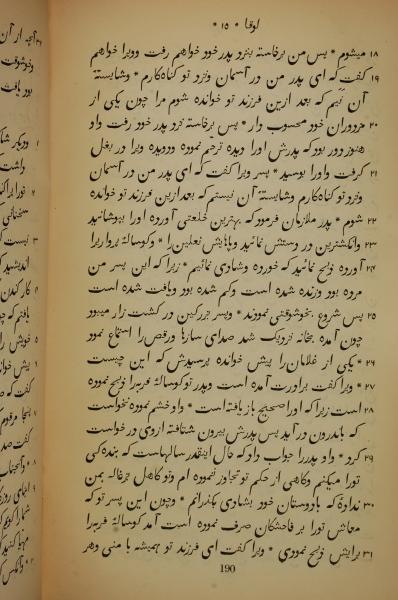 لوقا * ۱۵ *
۱۸ میشوم * پس من برخاسته بنزد پدر خود خواهم رفت و ویرا خواهم
۱۹ گفت که ای پدر من در آسمان و نزد تو گناه کارم * و شایستهٔ
آن نیم که بعد ازین فرزند تو خوانده شوم مرا چون یکی از
۲۰ مزدوران خود محسوب دار * پس برخاسته نزد پدر خود رفت و او
هنوز دور بود که پدرش اورا دیده ترحم نموده و دویده ویرا در بغل
۲۱ گرفت و اورا بوسید * پسر ویرا گفت که ای پدر من در آسمان
و نزد تو گناه کارم و شایستهٔ آن نیستم که بعد ازین فرزند تو خوانده
۲۲ شوم * پدر ملازمان فرمود که بهترین خلعتی آورده اورا بپوشانید
۲۳ و انگشترین در دستش نمائید و پایش نعلین را * و گوسالهٔ پرواریرا
۲۴ آورده ذبح نمائید که خورده و شادی نمائیم * زیرا که این پسر من
مرده بود و زنده شده است و گم شده بود و یافت شده است
۲۵ پس شروع بخوشوقتی نمودند * و پسر بزرگین در کشت زار میبود
چون آمده بخانه نزدیک شد صدای سازها و رقص را استماع نمود
۲۶ * یکی از غلامان را پیش خوانده پرسیدش که این چیست
۲۷ * ویرا گفت برادرت آمده است و پدر تو گوسالهٔ فربه را ذبح نموده
۲۸ است زیرا که اورا صحیح باز یافته است * و او خشم نموده نخواست
که باندرون در آید پس پدرش بیرون شتافته ازوی درخواست
۲۹ کرد * و او پدر را جواب داد که حال اینقدر سالهاست که بندهگی
ترا میکنم و گاهی از حکم تو تجاوز ننموده ام و تو گاهی بزغاله بمن
۳۰ ندادهٔ که با دوستان خود بشادی بگذرانم * و چون این پسر تو که
معاش ترا بر فاحشگان صرف نموده است آمد گوسالهٔ فربه را
۳۱ برایش ذبح نمودی * ویرا گفت ای فرزند تو همیشه با منی و هر
190